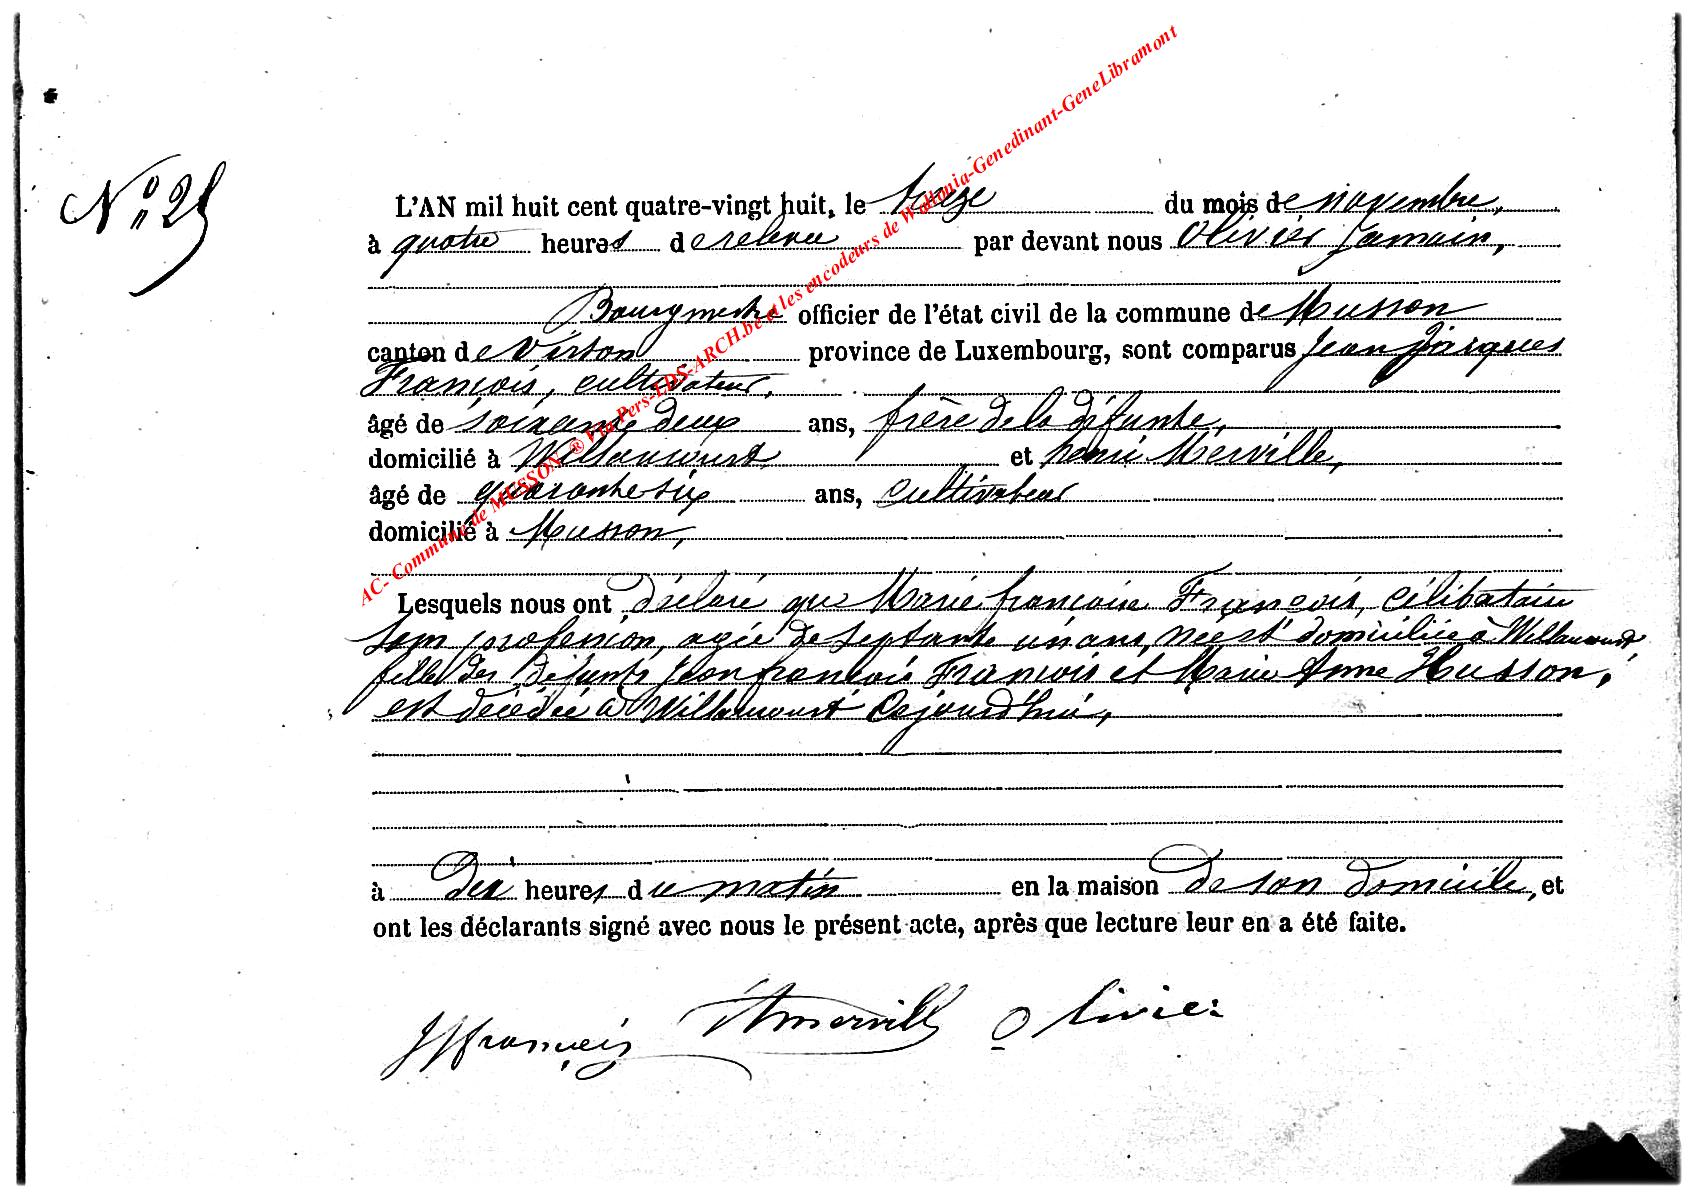 N° 25
L'AN mil huit cent quatre-vingt huit, le treize du mois de novembre,
à quatre heures de relevée par devant nous Olivier Jamain,
Bourgmestre officier de l'état civil de la commune de Musson
canton de Virton province de Luxembourg, sont comparus Jean Jacques
François, cultivateur,
âgé de soixante deux ans, frère de la défunte,
domicilié à Willancourt et henri Merville,
âgé de quarante six ans, cultivateur
domicilié à Musson,
Lesquels nous ont déclaré que Marie françoise François, célibataire
sans profession, agée de septante un ans, née et domiciliée à Willancourt,
fille des défunts Jean françois François et Marie Anne Husson,
est décédée à Willancourt cejourd'hui,
à dix heures du matin en la maison de son domicile, et
ont les déclarants signé avec nous le présent acte, après que lecture leur en a été faite.
JJfrançois Hmerville Olivier
AC- Commune de MUSSON ® Via Pers-LDS-ARCH.be et les encodeurs de Wallonia-Genedinant-GeneLibramont